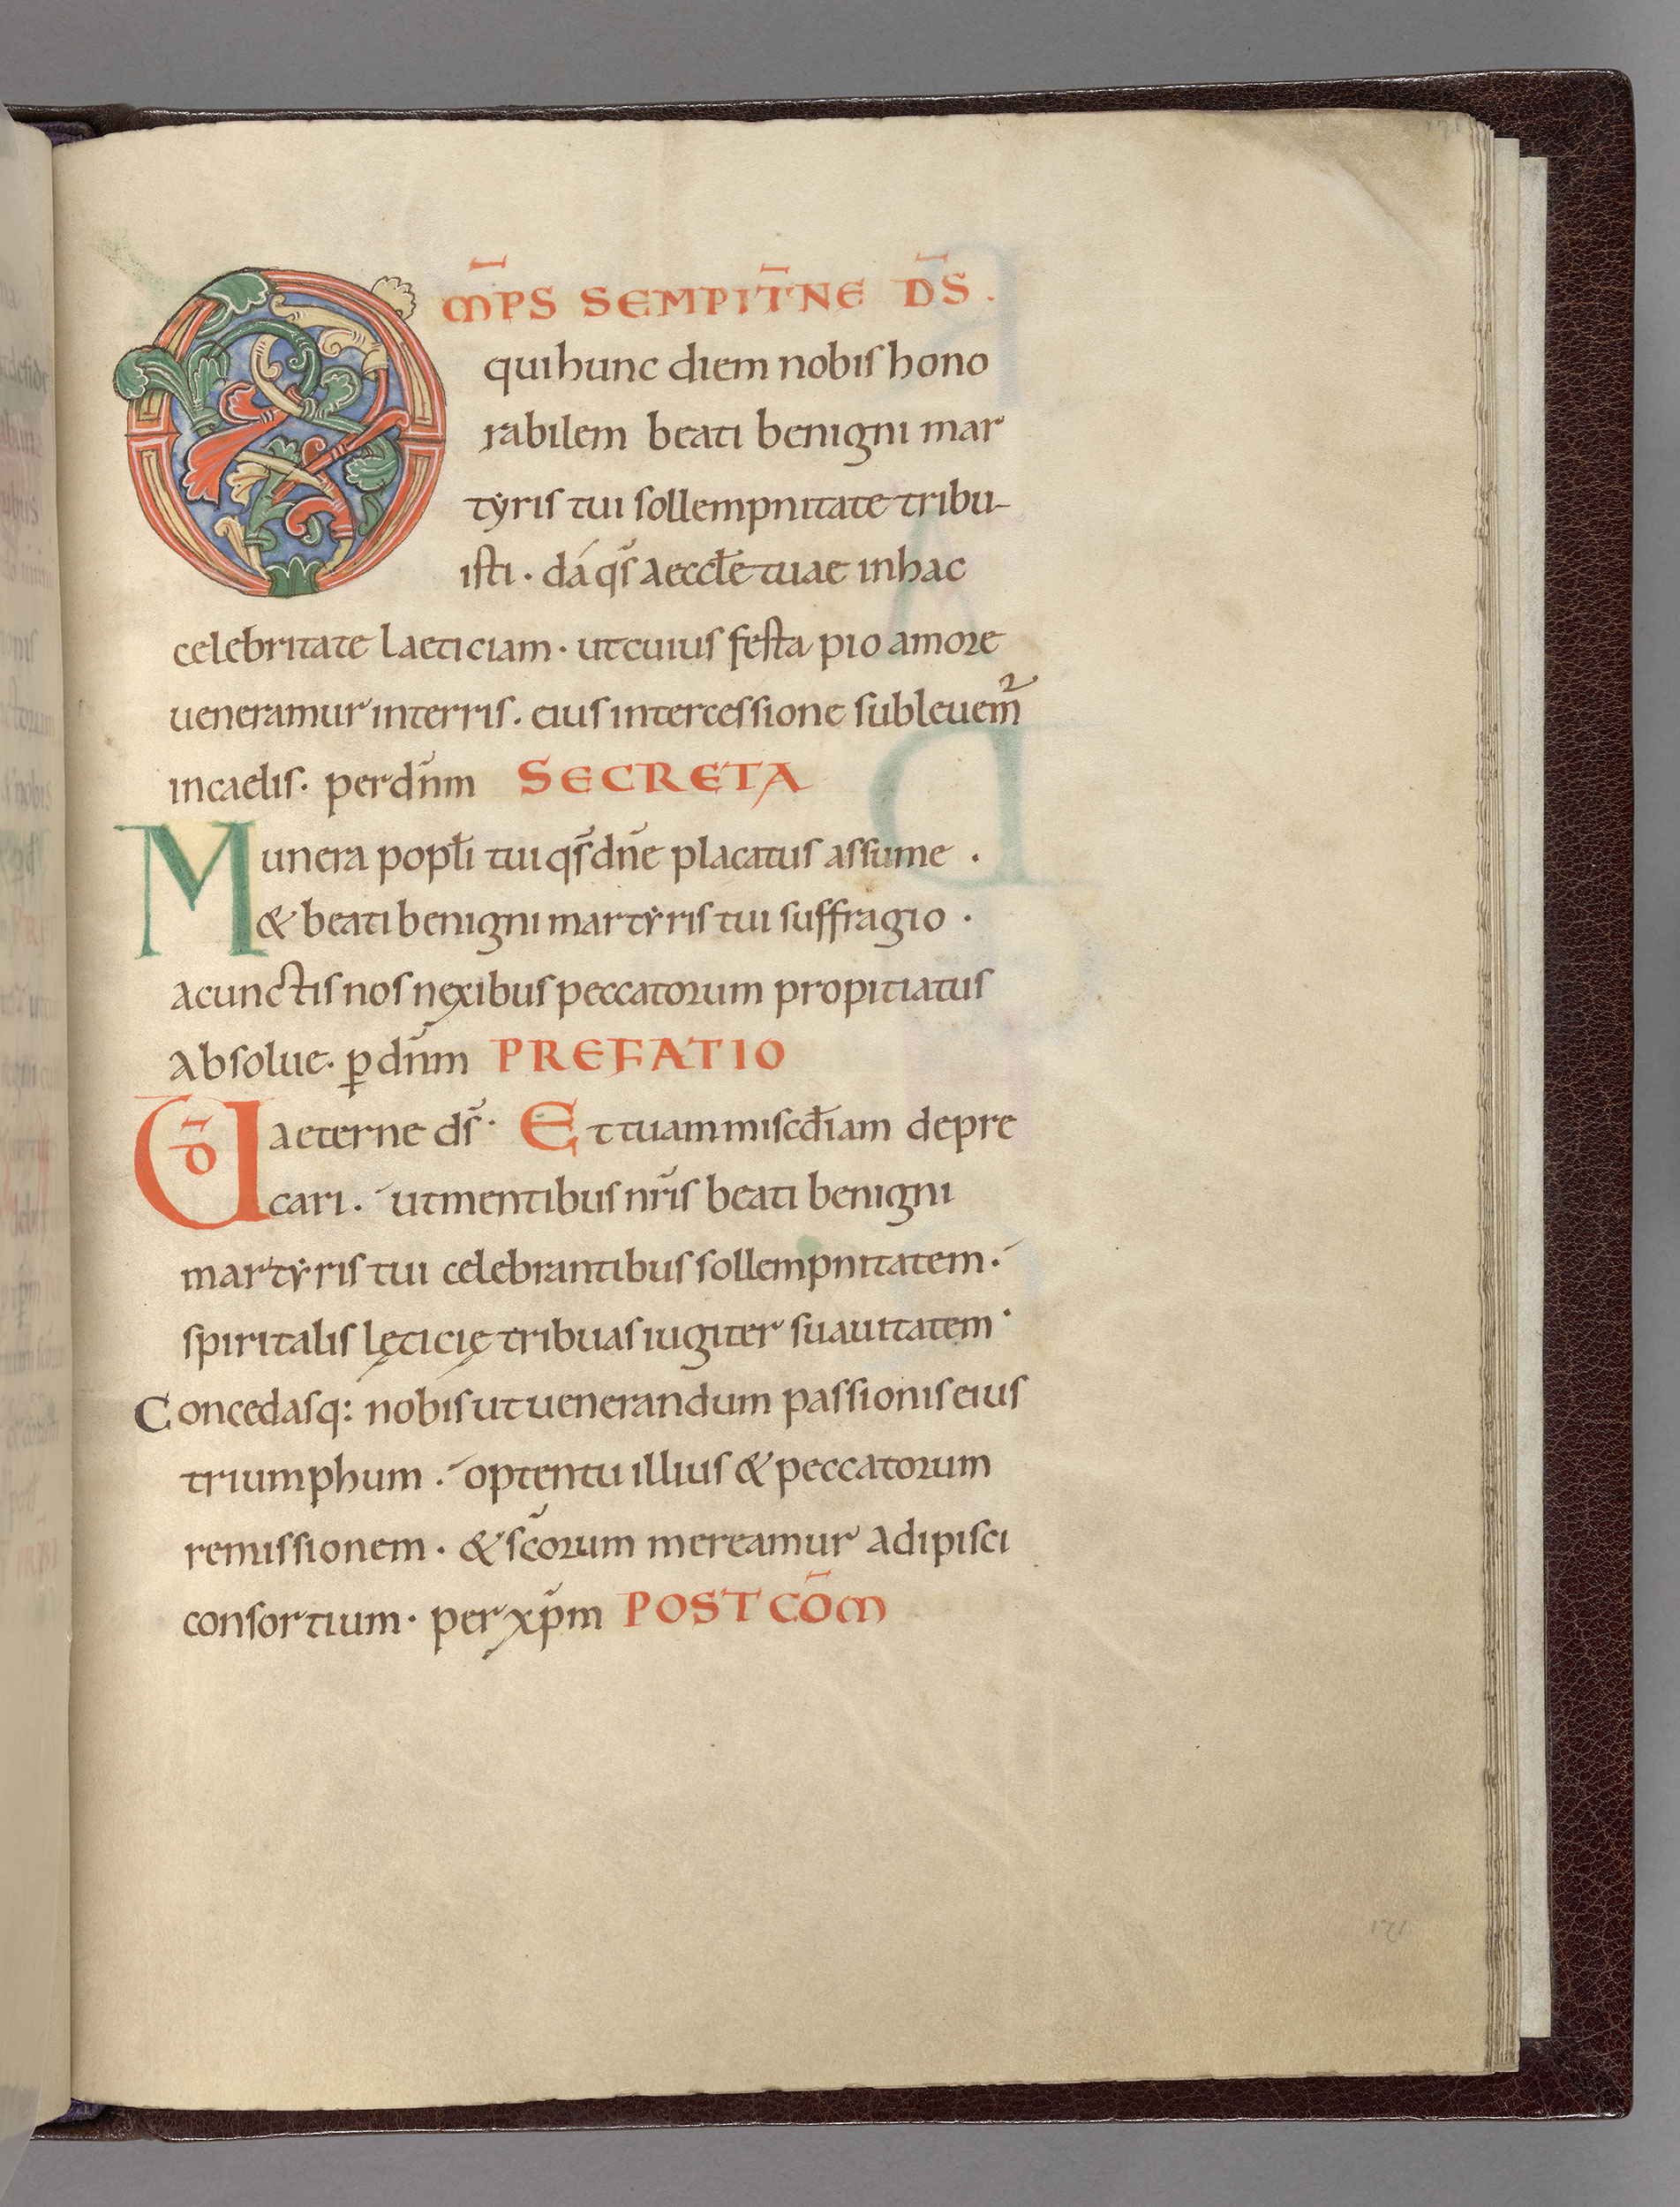 OMP̄S SEMPIT̄NE D̄S.
qui hunc diem nobis hono
rabilem beati benigni mar
tyris tui sollempnitate tribu-
isti. dá qs̄ aeccl̄e tuae in hac
celebritate laeticiam. ut cuius festa pio amore
ueneramur in terris. eius intercessione subleuem̄2
in caelis. per dn̄m SECRETA
Munera popl̄i tui qs̄ dn̄e placatus assume .
& beati benigni martyris tui suffragio .
a cunctis nos nexibus peccatorum propitiatus
absolue. ꝑ dn̄m PREFATIO
UD̄ aeterne ds̄. Et tuam miscd̄iam depre
cari. ut mentibus nr̄is beati benigni
martyris tui celebrantibus sollempnitatem.
spiritalis lęticię tribuas iugiter suauitatem.
Concedasq: nobis ut uenerandum passionis eius
triumphum. optentu illius & peccatorum
remissionem. & sc̄orum mereamur adipisci
consortium. per xp̄m POST CŌM